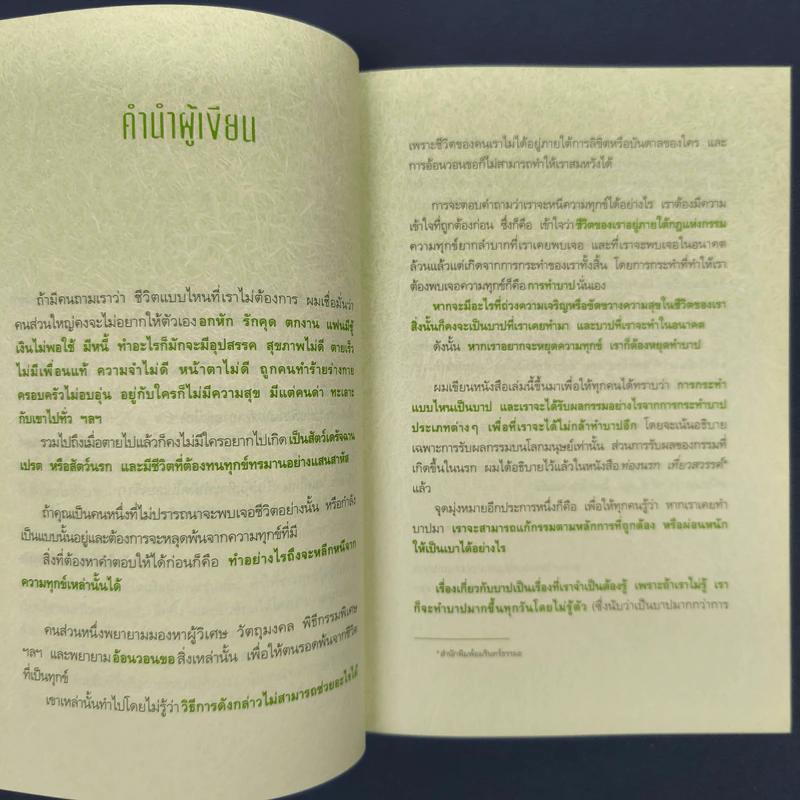 คำนำผู้เขียน
ถ้ามีคนถามเราว่า ชีวิตแบบไหนที่เราไม่ต้องการ ผมเชื่อมั่นว่า
คนส่วนใหญ่คงจะไม่อยากให้ตัวเอง อกหัก รักคุด ตกงาน แฟนมีชู้
เงินไม่พอใช้ มีหนี้ ทำอะไรก็มักจะมีอุปสรรค สุขภาพไม่ดี ตายเร็ว
ไม่มีเพื่อนแท้ ความจำไม่ดี หน้าตาไม่ดี ถูกคนทำร้ายร่างกาย
ครอบครัวไม่อบอุ่น อยู่กับใครก็ไม่มีความสุข มีแต่คนด่า ทะเลาะ
กับเขาไปทั่ว ฯลฯ
รวมไปถึงเมื่อตายไปแล้วก็คงไม่มีใครอยากไปเกิดเป็นสัตว์เดรัจฉาน
เปรต หรือสัตว์นรก และมีชีวิตที่ต้องทนทุกข์ทรมานอย่างแสนสาหัส
ถ้าคุณเป็นคนหนึ่งที่ไม่ปรารถนาจะพบเจอชีวิตอย่างนั้น หรือกำลัง
เป็นแบบนั้นอยู่และต้องการจะหลุดพ้นจากความทุกข์ที่มี
สิ่งที่ต้องหาคำตอบให้ได้ก่อนก็คือ ทำอย่างไรถึงจะหลีกหนีจาก
ความทุกข์เหล่านั้นได้
คนส่วนหนึ่งพยายามมองหาผู้วิเศษ วัตถุมงคล พิธีกรรมพิเศษ
ฯลฯ และพยายามอ้อนวอนขอสิ่งเหล่านั้น เพื่อให้ตนรอดพ้นจากชีวิต
ที่เป็นทุกข์
เขาเหล่านั้นทำไปโดยไม่รู้ว่าวิธีการดังกล่าวไม่สามารถช่วยอะไรได้
เพราะชีวิตของคนเราไม่ได้อยู่ภายใต้การลิขิตหรือบันดาลของใคร และ
การอ้อนวอนขอก็ไม่สามารถทำให้เราสมหวังได้
การจะตอบคำถามว่าเราจะหนีความทุกข์ได้อย่างไร เราต้องมีความ
เข้าใจที่ถูกต้องก่อน ซึ่งก็คือ เข้าใจว่าชีวิตของเราอยู่ภายใต้กฎแห่งกรรม
ความทุกข์ยากลำบากที่เราเคยพบเจอ และที่เราจะพบเจอในอนาคต
ล้วนแล้วแต่เกิดจากการกระทำของเราทั้งสิ้น โดยการกระทำที่ทำให้เรา
ต้องพบเจอความทุกข์ก็คือ การทำบาปนั่นเอง
หากจะมีอะไรที่ถ่วงความเจริญหรือขัดขวางความสุขในชีวิตของเรา
สิ่งนั้นก็คงจะเป็นบาปที่เราเคยทำมา และบาปที่เราจะทำในอนาคต
ดังนั้น หากเราอยากจะหยุดความทุกข์ เราก็ต้องหยุดทำบาป
ผมเขียนหนังสือเล่มนี้ขึ้นมาเพื่อให้ทุกคนได้ทราบว่า การกระทำ
แบบไหนเป็นบาป และเราจะได้รับผลกรรมอย่างไรจากการกระทำบาป
ประเภทต่างๆ เพื่อที่เราจะได้ไม่กล้าทำบาปอีก โดยจะเน้นอธิบาย
เฉพาะการรับผลกรรมบนโลกมนุษย์เท่านั้น ส่วนการรับผลของกรรมที่
เกิดขึ้นในนรก ผมได้อธิบายไว้แล้วในหนังสือ ท่องนรก เที่ยวสวรรค์*
แล้ว
จุดมุ่งหมายอีกประการหนึ่งก็คือ เพื่อให้ทุกคนรู้ว่า หากเราเคยทำ
บาปมา เราจะสามารถแก้กรรมตามหลักการที่ถูกต้อง หรือผ่อนหนัก
ให้เป็นเบาได้อย่างไร
เรื่องเกี่ยวกับบาปเป็นเรื่องที่เราจำเป็นต้องรู้ เพราะถ้าเราไม่รู้ เรา
ก็จะทำบาปมากขึ้นทุกวันโดยไม่รู้ตัว (ซึ่งนับว่าเป็นบาปมากกว่าการ
*สำนักพิมพ์อมรินทร์ธรรมะ